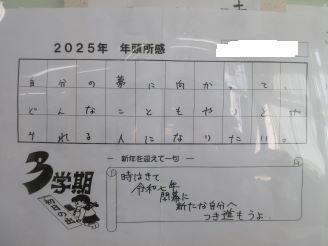 2025年 年頭所感
自分の夢に向かって、
どんなこともやりとげ
られる人になりたい。
― 新年を迎えて一句 ―
3学期
時はきて
令和七年
開幕に
新たな自分へ
つき進もうよ